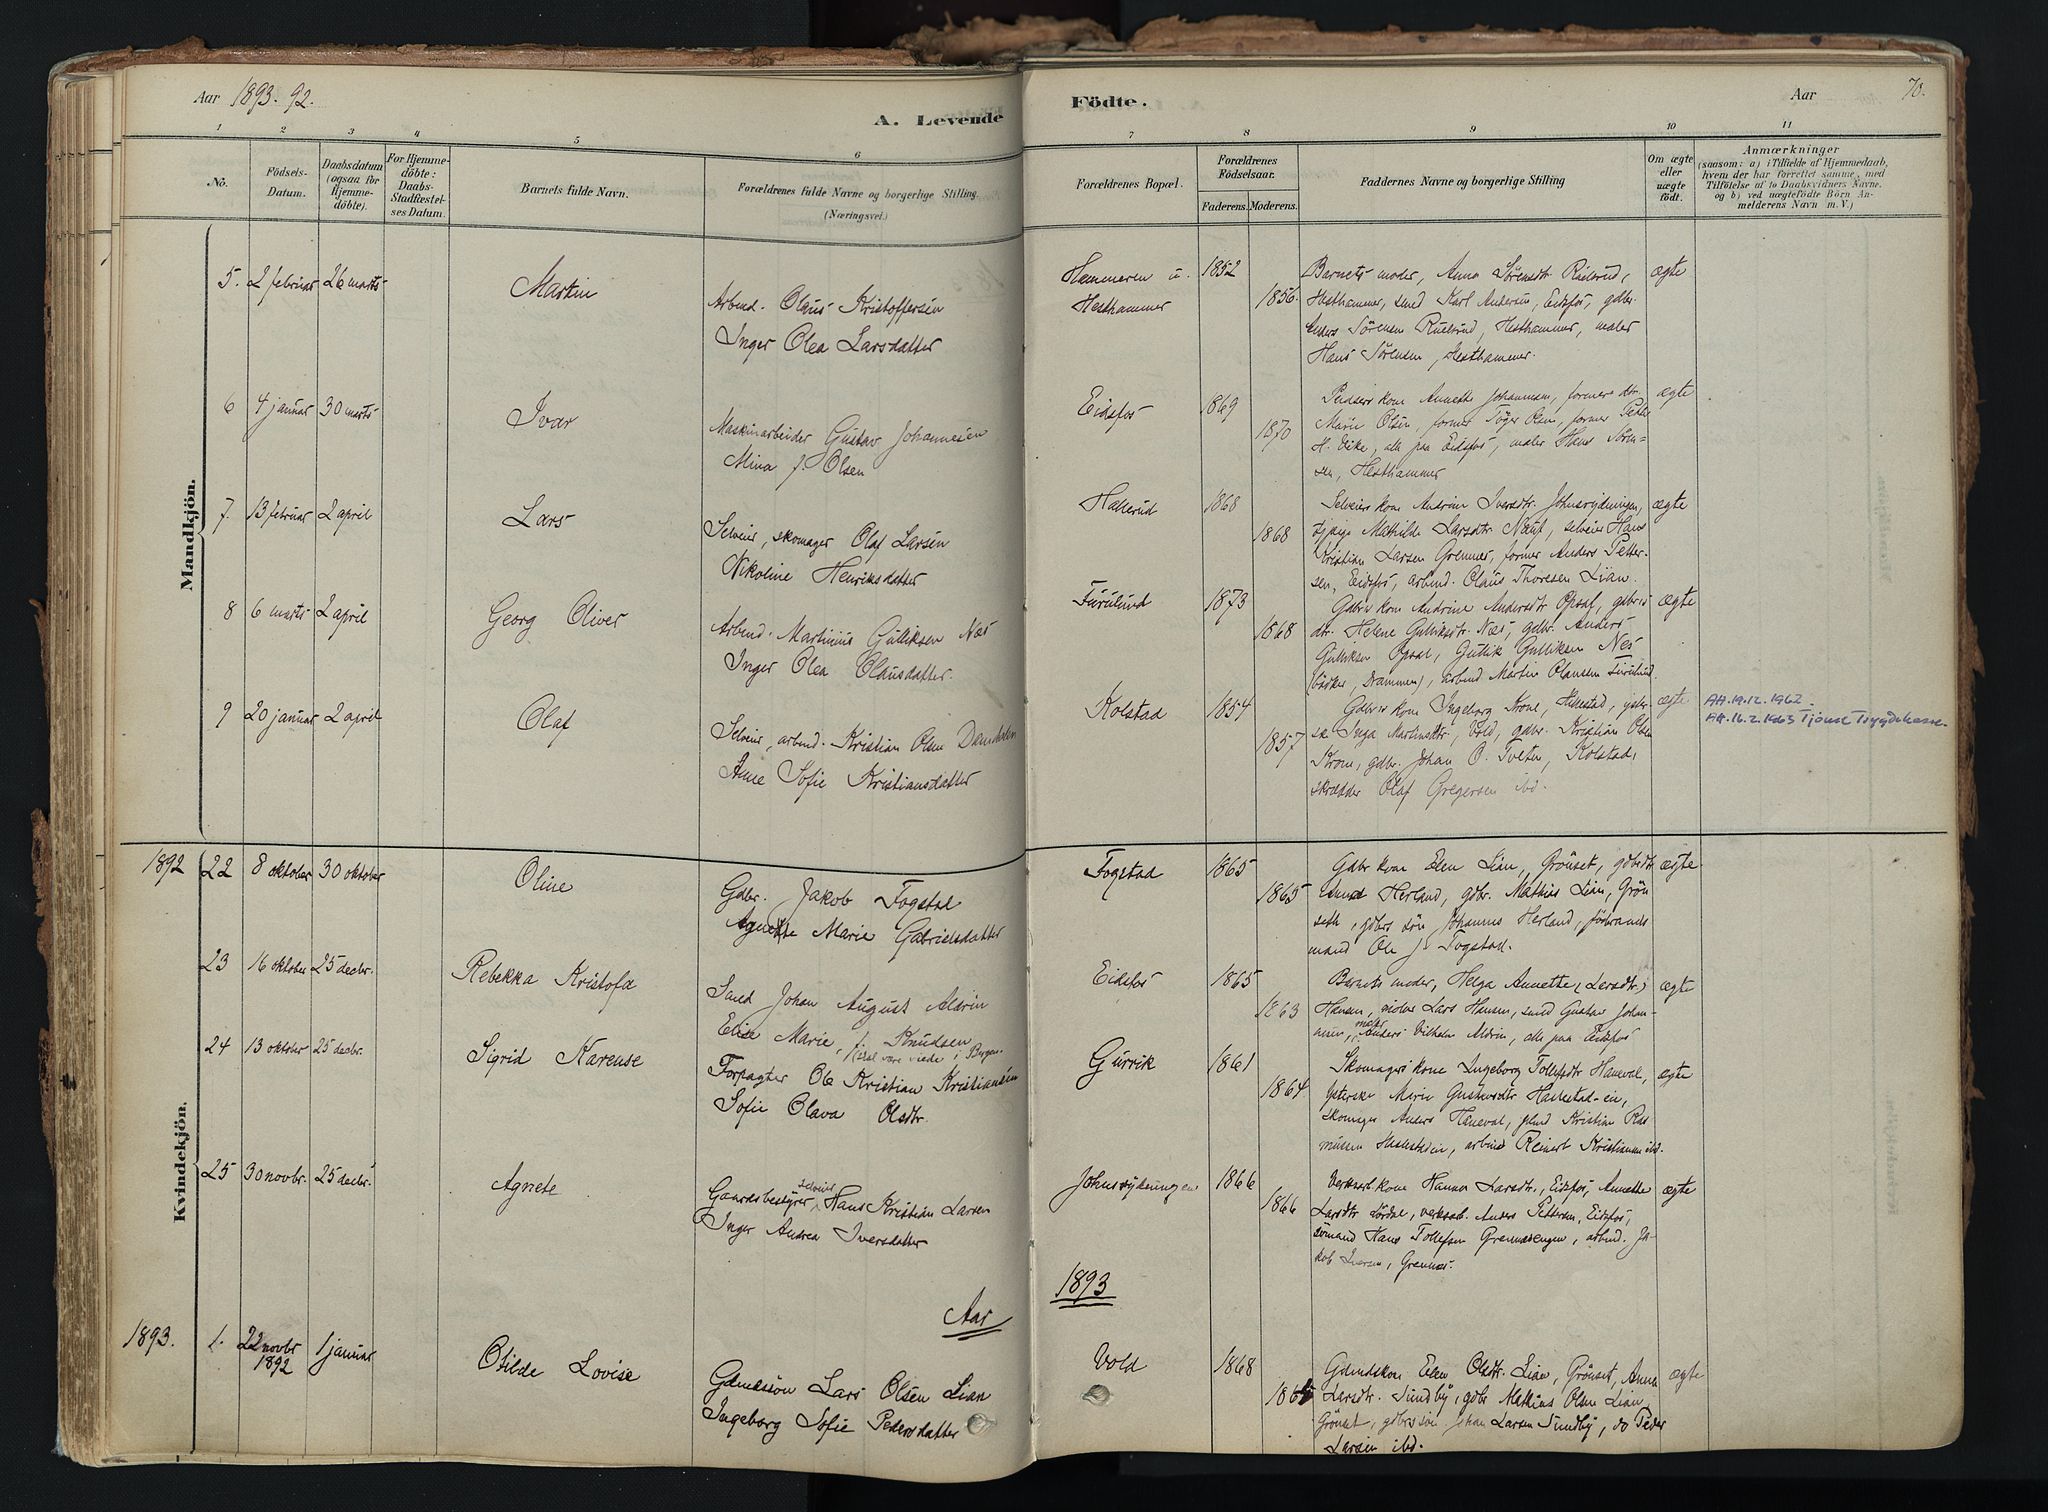 Aar 1893. 92.
A. Levende
Födte.
Aar
70.
1 2 3 4 5 6 7 8 9 10 11
No.
Födsels-
Datum.
Daabsdatum
(ogsaa for
Hjemme-
döbte).
For Hjemme-
döbte:
Daabs-
Stadfæstel-
ses Datum.
Barnets fulde Navn.
Forældrenes fulde Navne og borgerlige Stilling
(Næringsvei.)
Forældrenes Bopæl.
Forældrenes
Födselsaar.
Faderens. Moderens.
Faddernes Navne og borgerlige Stilling
Om ægte
eller
uægte
født.
Anmærkninger
(saasom: a) i Tilfælde af Hjemmedaab,
hvem der har forrettet samme, med
Tilföielse af to Daabsvidners Navne.
og b) ved uægtefödte Börn An-
melderens Navn m. V.)
Mandkjön.
5. 2 februar 26 marts
Martin
Arbmd. Olaus Kristoffersen
Inger Olea Larsdatter
Hammeren u.
Hesthammer
1852
1856.
Barnets moder, Anna Sörensdtr
Hesthammer, smed Karl Andersen, Eidsfos, gdbr.
Anders Sörensen Hesthammer, maler
Hans Sörensen, Hesthammer.
ægte
6 4 januar 30 marts
Ivar
Maskinarbeider Gustav Johannesen
Mina f. Olsen
Eidsfos
1869
1870
kone Annette Johannesen, former dtr.
Marie Olsen, former Olsen, former Petter
H. Vike, alle paa Eidsfos, maler Hans Sören-
sen, Hesthammer
ægte
7. 13 februar 2 april
Lars
Selveier, skomager Olaf Larsen
Nikoline Henriksdatter
Hallerud
1868
1868
Selveiers kone Andrine Iversdtr. Johnsrydningen,
Mathilde Larsdtr Næss, selveier Hans
Kristian Larsen Grennes, former Anders Petter-
sen, Eidsfos, arbmd. Olaus Thoresen Lian.
ægte
8 6 marts 2 april
Georg Oliver
Arbmd. Martinius Gulliksen Næs
Inger Olea Olausdatter.
Furulund
1873
1868
Gdbrs kone Andrine Andersdtr Opsal, gdbrs
dtr. Helene Gulliksdtr. Næs, gdbr. Anders
Gulliksen Opsal, Gullik Gulliksen Nes
(bödker, Drammen), arbmd Martin Olausen Furulund.
ægte
9 20 januar 2 april
Olaf
Selveier, arbmd. Kristian Olsen
Anne Sofie Kristiansdatter
Kolstad
1854
1857
Gdbrs kone Ingeborg Krone, Hillestad,
Inga Martinsdtr, Vold, gdbr. Kristian Olsen
Krone, gdbr. Johan O. Tveten, Kolstad,
skrædder Olaf Gregersen ibd.
ægte
AA. 19.12.1962.
AA. 16.2.1963 Tjöme Trygdekasse.
Kvindekjön.
1892 22 8 oktober 30 oktober
Oline
Gdbr. Jakob Fogstad
Agnethe Marie Gabrielsdatter
Fogstad
1865
1865
Gdbr kone Elen Lian, Grönset, gdbrdtr
Herland, gdbr. Mathias Lian, Grön
seth, gdbrs sön Johannes Herland, föderaads
mand Ole J. Fogstad.
ægte
23 16 oktober 25 decbr.
Rebekka Kristofa
Smed Johan August Aldrin
Elise Marie, f. Knudsen
skal være viede i Bergen.
Eidsfos
1865
1863
Barnets moder, Helga Annette (Larsdtr.)
Hansen, Lars Hansen, smed Gustav Johan-
nesen, Anders Vilhelm Aldrin, alle paa Eidsfos
ægte
24 13 oktober 25 decbr.
Sigrid Karense
Forpagter Ole Kristian Kristiansen
Sofie Olava Olsdtr.
Gurvik
1861
1864.
Skomagers kone Ingeborg Tollefsdtr Haneval,
Marie Gustavsdtr Hakkestad-eie,
skomager Anders Haneval, Kristian Ras
mussen arbmd Reinert Kristiansen ibd.
ægte
25 30 novbr. 25 decbr.
Agnete
Gaardsbestyrer, selveier Hans Kristian Larsen
Inger Andrea Iversdatter
Johnsrydningen
1866
1866
Verksarb kone Hanna Larsdtr., Eidsfos, Annette
Larsdtr verksarb. Anders Pettersen, Eidsfos,
sömand Hans Tollefsen Grennesengen, arbmd. Ja-
kob Iversen, Grennes.
ægte
Aar 1893
1893. 1. 22 novbr 1892 1 januar
Otilde Lovise
Gdmdssön Lars Olsen Lian
Ingeborg Sofie Pedersdatter
Vold
1868
Gdmdskone Elen Olsdtr. Lian, Grönset, Anna
Larsdtr. Sundby, gdbr Mathias Olsen Lian,
Grönset, gdbrssön Johan Larsen Sundby, do Peder
Larsen ibd.
ægte